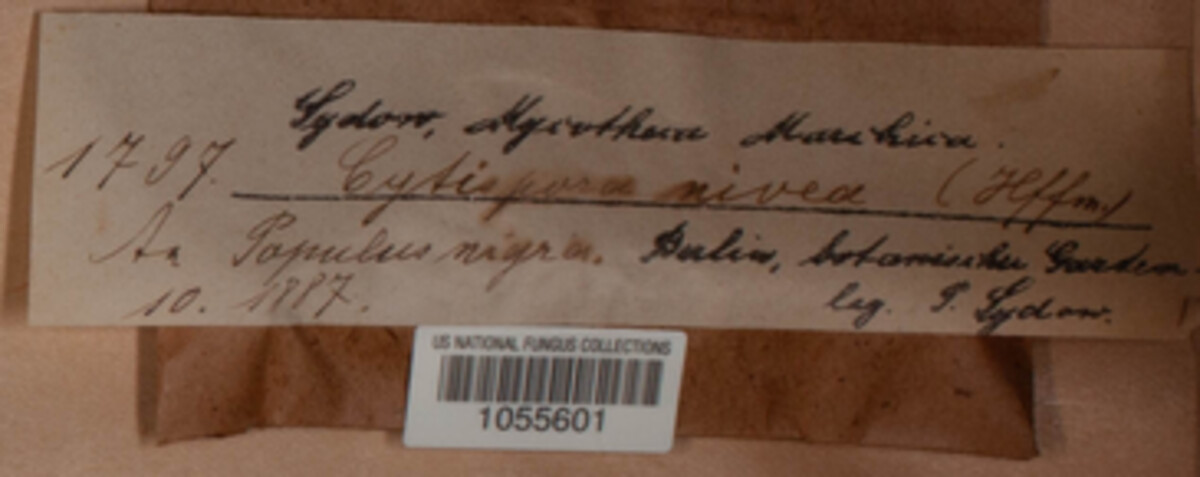 Sydow, Mycotheca Marchica.
1797. Cytispora nivea (Hffm.)
An Populus nigra. Berlin, botanischer Garten.
10. 1887. leg. P. Sydow.
US NATIONAL FUNGUS COLLECTIONS
1055601